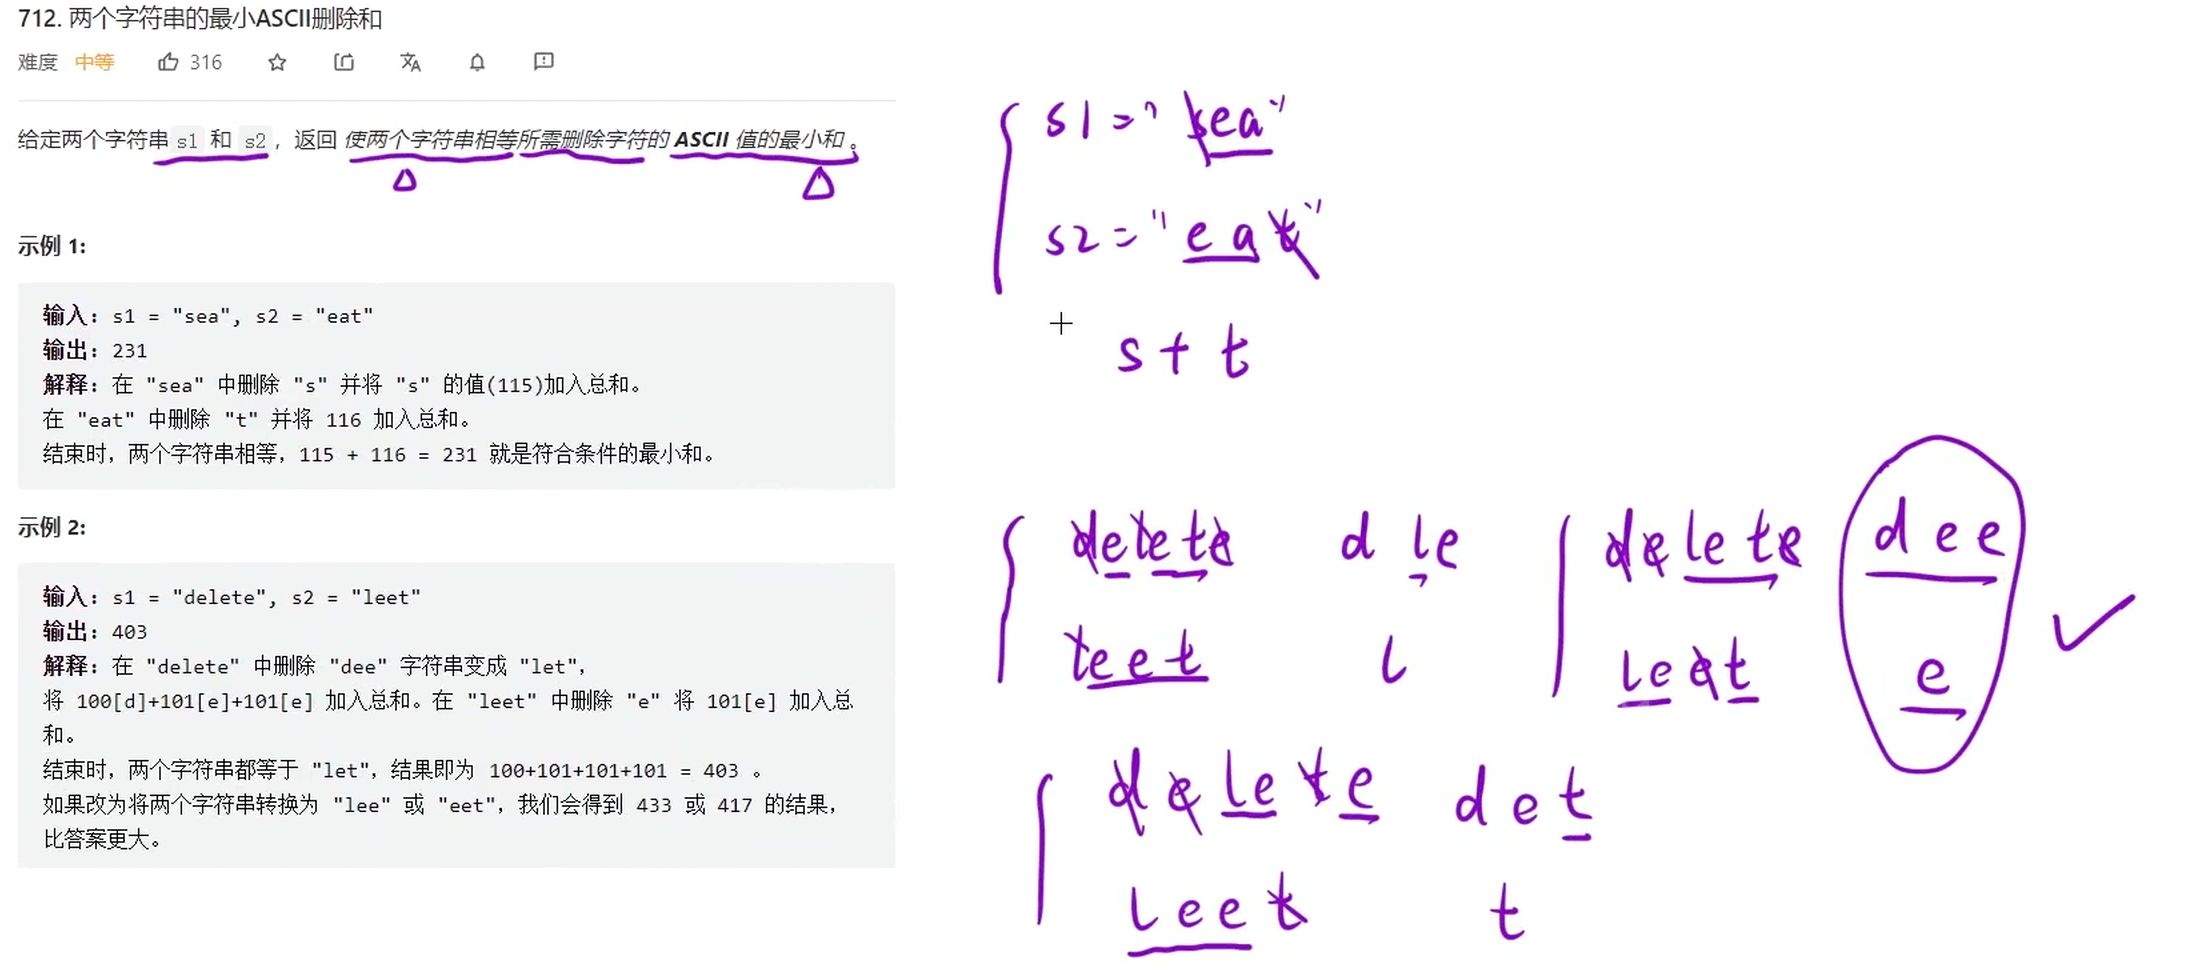 712. 两个字符串的最小ASCII删除和
难度 中等 316
给定两个字符串 s1 和 s2，返回 使两个字符串相等所需删除字符的 ASCII 值的最小和 。
示例 1:
输入: s1 = "sea", s2 = "eat"
输出: 231
解释: 在 "sea" 中删除 "s" 并将 "s" 的值(115)加入总和。
在 "eat" 中删除 "t" 并将 116 加入总和。
结束时，两个字符串相等，115 + 116 = 231 就是符合条件的最小和。
示例 2:
输入: s1 = "delete", s2 = "leet"
输出: 403
解释: 在 "delete" 中删除 "dee" 字符串变成 "let"，
将 100[d]+101[e]+101[e] 加入总和。在 "leet" 中删除 "e" 将 101[e] 加入总
和。
结束时，两个字符串都等于 "let"，结果即为 100+101+101+101 = 403 。
如果改为将两个字符串转换为 "lee" 或 "eet"，我们会得到 433 或 417 的结果，
比答案更大。
s1 = "sea"
s2 = "eat"
s + t
delete d le
leet l
delete dee
leet e
delete det
leet t